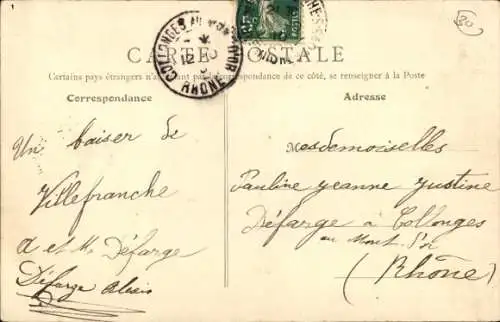 1
COLLONGES AU MONT D'OR
12
RHÔNE
20
CARTE POSTALE
Certains pays étrangers n'acceptant pas la correspondance de ce côté, se renseigner à la Poste
Correspondance
Adresse
Un baiser de
Villefranche
A et M. Défarge
Défarge Alexis
Mesdemoiselles
Pauline Jeanne Justine
Défarge à Collonges
au Mont d'or
(Rhône)